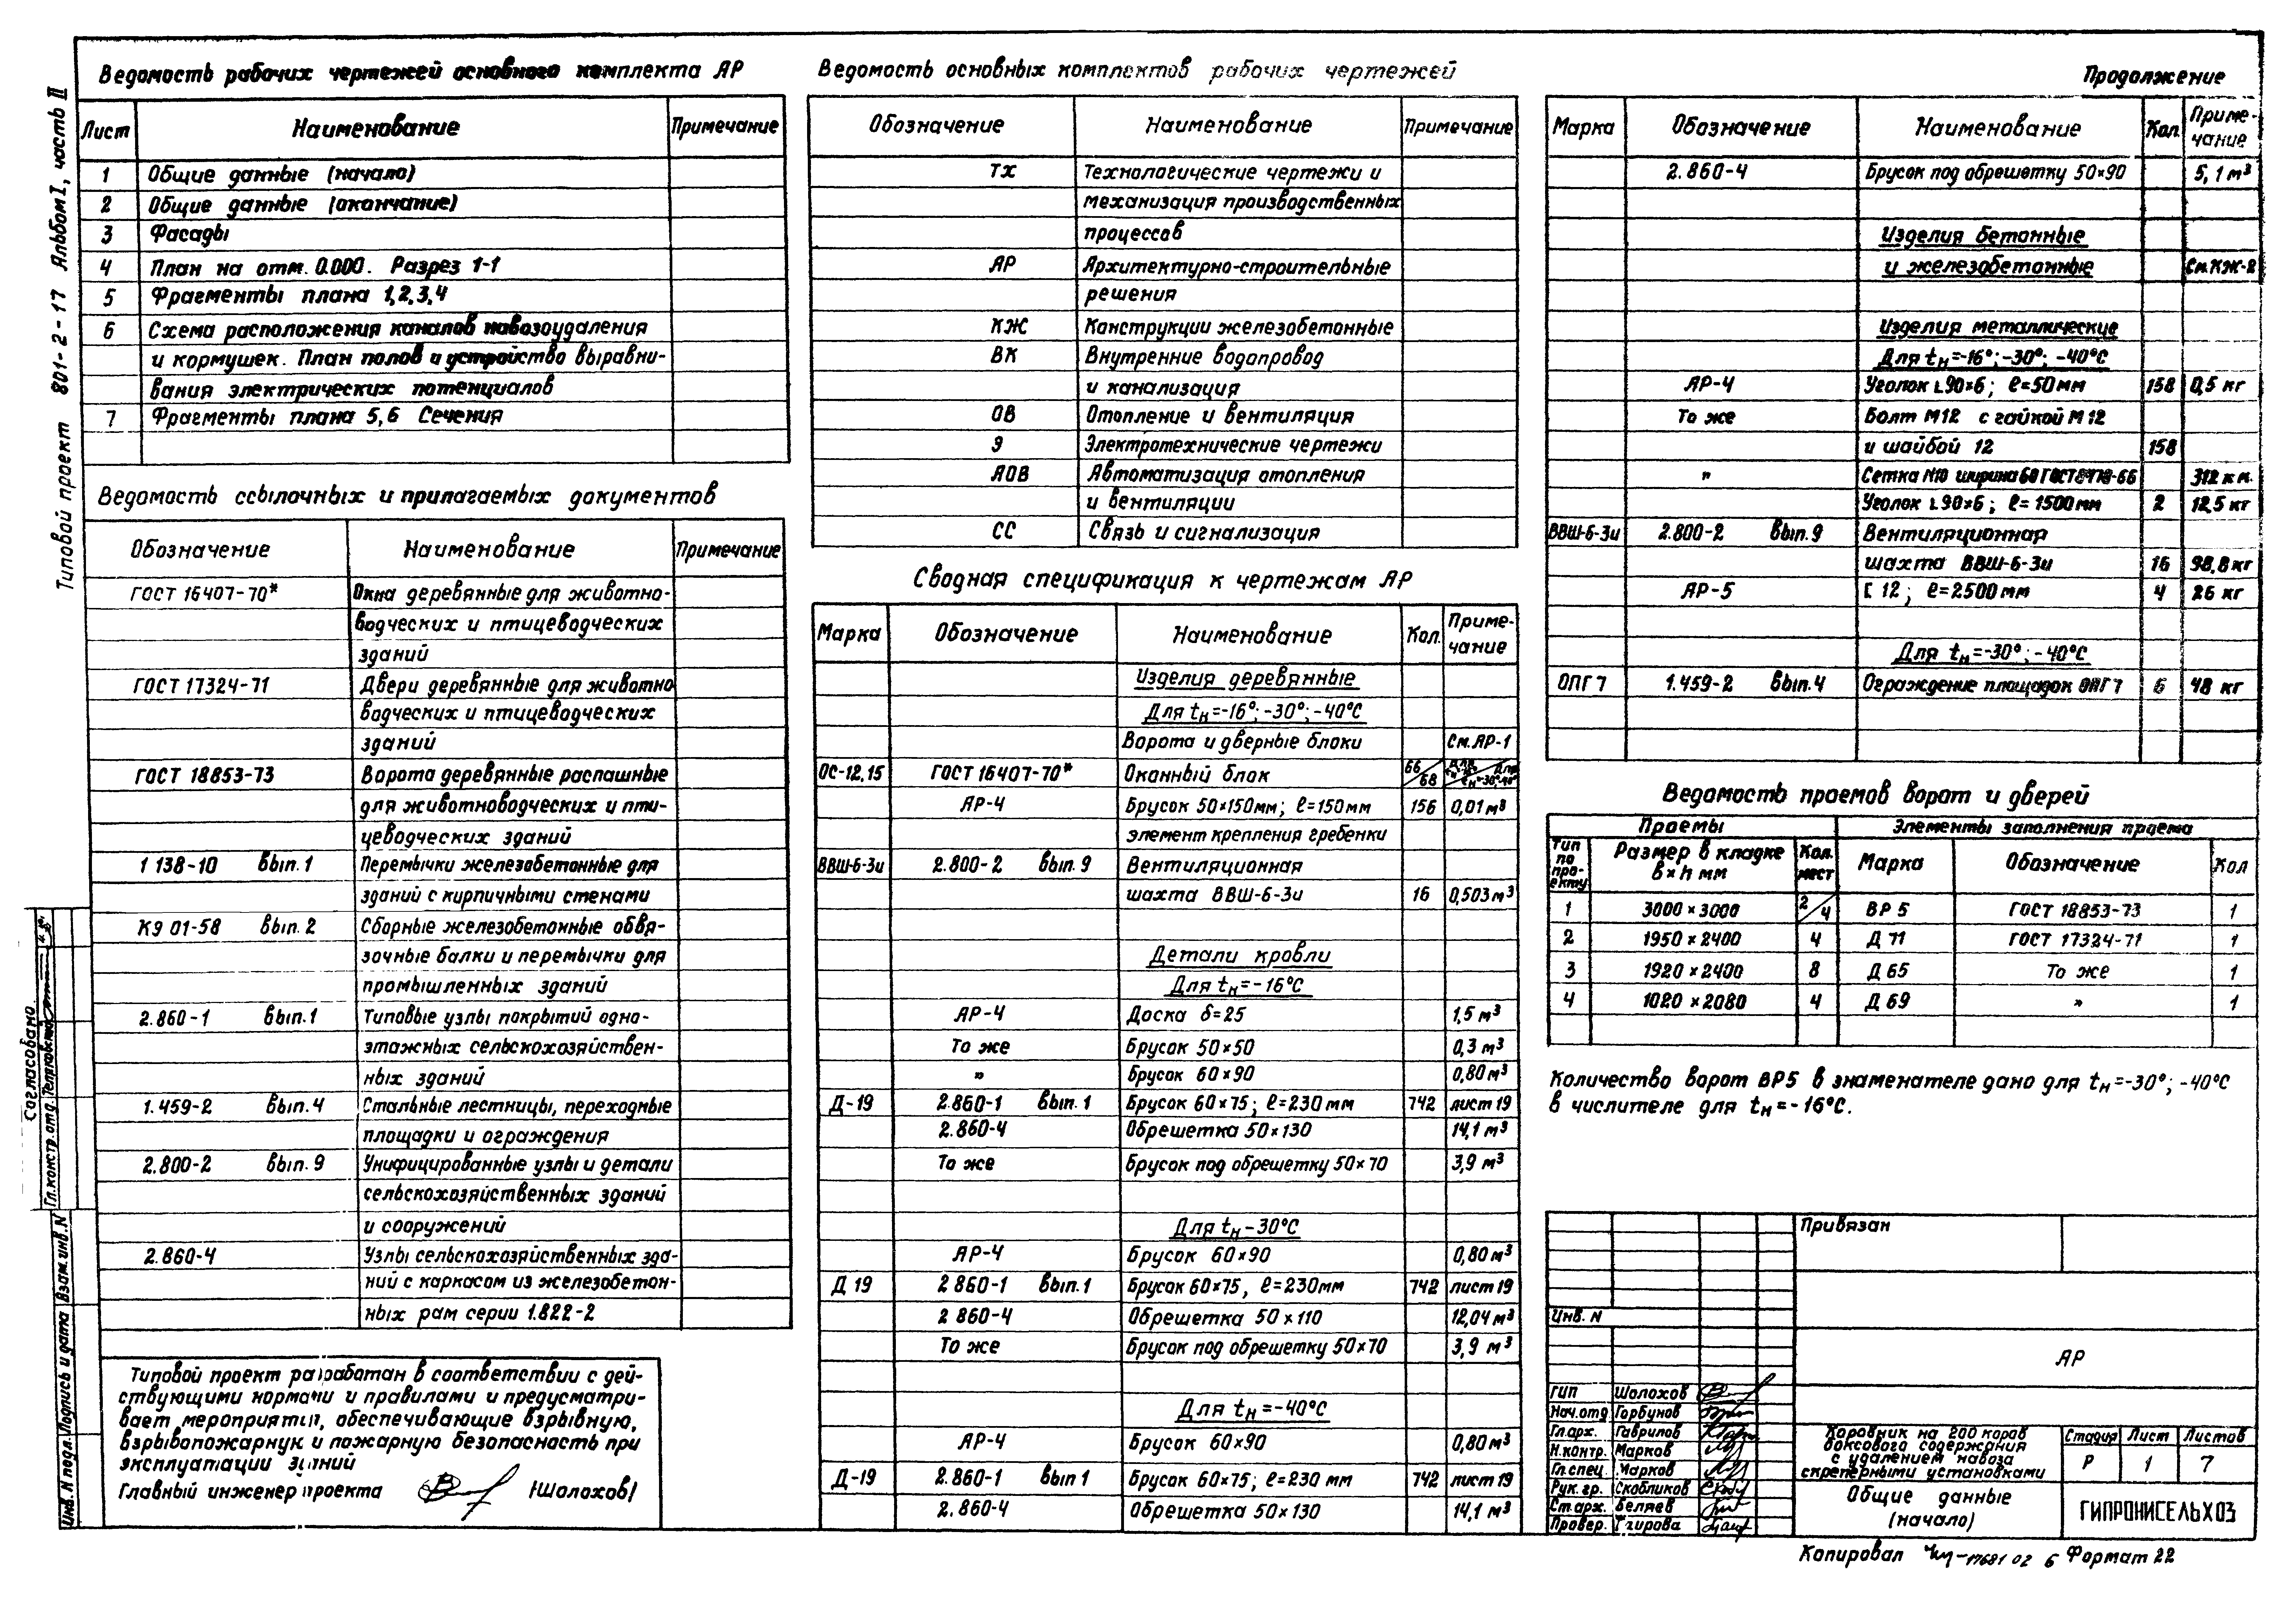 Типовой проект 801-2-17 Альбом I, часть II
Ведомость рабочих чертежей основного комплекта АР
Лист Наименование Примечание
1 Общие данные (начало)
2 Общие данные (окончание)
3 Фасады
4 План на отм. 0.000. Разрез 1-1
5 Фрагменты плана 1,2,3,4
6 Схема расположения каналов навозоудаления
и кормушек. План полов и устройство выравни-
вания электрических потенциалов
7 Фрагменты плана 5,6 Сечения
Ведомость ссылочных и прилагаемых документов
Обозначение Наименование Примечание
ГОСТ 16407-70* Окна деревянные для животно-
водческих и птицеводческих
зданий
ГОСТ 17324-71 Двери деревянные для животно
водческих и птицеводческих
зданий
ГОСТ 18853-73 Ворота деревянные распашные
для животноводческих и пти-
цеводческих зданий
1 138-10 вып.1 Перемычки железобетонные для
зданий с кирпичными стенами
КЭ 01-58 вып. 2 Сборные железобетонные обвя-
зочные балки и перемычки для
промышленных зданий
2.860-1 вып.1 Типовые узлы покрытий одно-
этажных сельскохозяйствен-
ных зданий
1.459-2 вып.4 Стальные лестницы, переходные
площадки и ограждения
2.800-2 вып. 9 Унифицированные узлы и детали
сельскохозяйственных зданий
и сооружений
2.860-4 Узлы сельскохозяйственных зда-
ний с каркасом из железобетон-
ных рам серии 1.822-2
Типовой проект разработан в соответствии с дей-
ствующими нормами и правилами и предусматри-
вает мероприятия, обеспечивающие взрывную,
взрывопожарную и пожарную безопасность при
эксплуатации зданий
Главный инженер проекта /Шолохов/
Согласовано
Гл. констр. отд.
Взам. инв. N
Подпись и дата
Инв. N подл.
Ведомость основных комплектов рабочих чертежей
Обозначение Наименование Примечание
ТХ Технологические чертежи и
механизация производственных
процессов
АР Архитектурно-строительные
решения
КЖ Конструкции железобетонные
ВК Внутренние водопровод
и канализация
ОВ Отопление и вентиляция
Э Электротехнические чертежи
АОВ Автоматизация отопления
и вентиляции
СС Связь и сигнализация
Сводная спецификация к чертежам АР
Марка Обозначение Наименование Кол. Приме-
чание
Изделия деревянные
Для tн=-16°; -30°; -40°С
Ворота и дверные блоки См. АР-1
ОС-12,15 ГОСТ 16407-70* Оконный блок 66/68 для tн=-16° / для tн=-30°,-40°
АР-4 Брусок 50×150мм; ℓ=150мм 156 0,01 м³
элемент крепления гребенки
ВВШ-6-3и 2.800-2 вып. 9 Вентиляционная
шахта ВВШ-6-3и 16 0,503 м³
Детали кровли
Для tн=-16°С
АР-4 Доска δ=25 1,5 м³
То же Брусок 50×50 0,3 м³
" Брусок 60×90 0,80 м³
Д-19 2.860-1 вып. 1 Брусок 60×75; ℓ=230 мм 742 лист 19
2.860-4 Обрешетка 50×130 14,1 м³
То же Брусок под обрешетку 50×70 3,9 м³
Для tн-30°С
АР-4 Брусок 60×90 0,80 м³
Д 19 2 860-1 вып. 1 Брусок 60×75, ℓ=230мм 742 лист 19
2 860-4 Обрешетка 50×110 12,04 м³
То же Брусок под обрешетку 50×70 3,9 м³
Для tн=-40°С
АР-4 Брусок 60×90 0,80 м³
Д-19 2.860-1 вып 1 Брусок 60×75; ℓ=230 мм 742 лист 19
2.860-4 Обрешетка 50×130 14,1 м³
Продолжение
Марка Обозначение Наименование Кол. Приме-
чание
2.860-4 Брусок под обрешетку 50×90 5,1 м³
Изделия бетонные
и железобетонные См. КЖ-2
Изделия металлические
Для tн=-16°; -30°; -40°С
АР-4 Уголок ∟90×6; ℓ=50мм 158 0,5 кг
То же Болт М12 с гайкой М12
и шайбой 12 158
" Сетка N10 ширина 60 ГОСТ 5718-66 312 к м.
Уголок ∟90×6; ℓ=1500мм 2 12,5 кг
ВВШ-6-3и 2.800-2 вып. 9 Вентиляционная
шахта ВВШ-6-3и 16 98,8 кг
АР-5 [ 12; ℓ=2500мм 4 26 кг
Для tн=-30°; -40°С
ОПГ 7 1.459-2 вып.4 Ограждение площадок ОПГ 7 6 48 кг
Ведомость проемов ворот и дверей
Проемы Элементы заполнения проема
Тип по про-екту Размер в кладке в×h мм Кол. мест Марка Обозначение Кол
1 3000×3000 2/4 ВР 5 ГОСТ 18853-73 1
2 1950×2400 4 Д 71 ГОСТ 17324-71 1
3 1920×2400 8 Д 65 То же 1
4 1020×2080 4 Д 69 " 1
Количество ворот ВР5 в знаменателе дано для tн=-30°; -40°С
в числителе для tн=-16°С.
Привязан
Инв. N
АР
ГИП Шолохов
Нач.отд Горбунов
Гл.арх. Гаврилов
Н.контр. Марков
Гл.спец Марков
Рук.гр. Скобликов
Ст.арх. Беляев
Провер.
Коровник на 200 коров
боксового содержания
с удалением навоза
скреперными установками
Стадия Лист Листов
Р 1 7
Общие данные
(начало)
ГИПРОНИСЕЛЬХОЗ
Копировал 17681 02 6 Формат 22